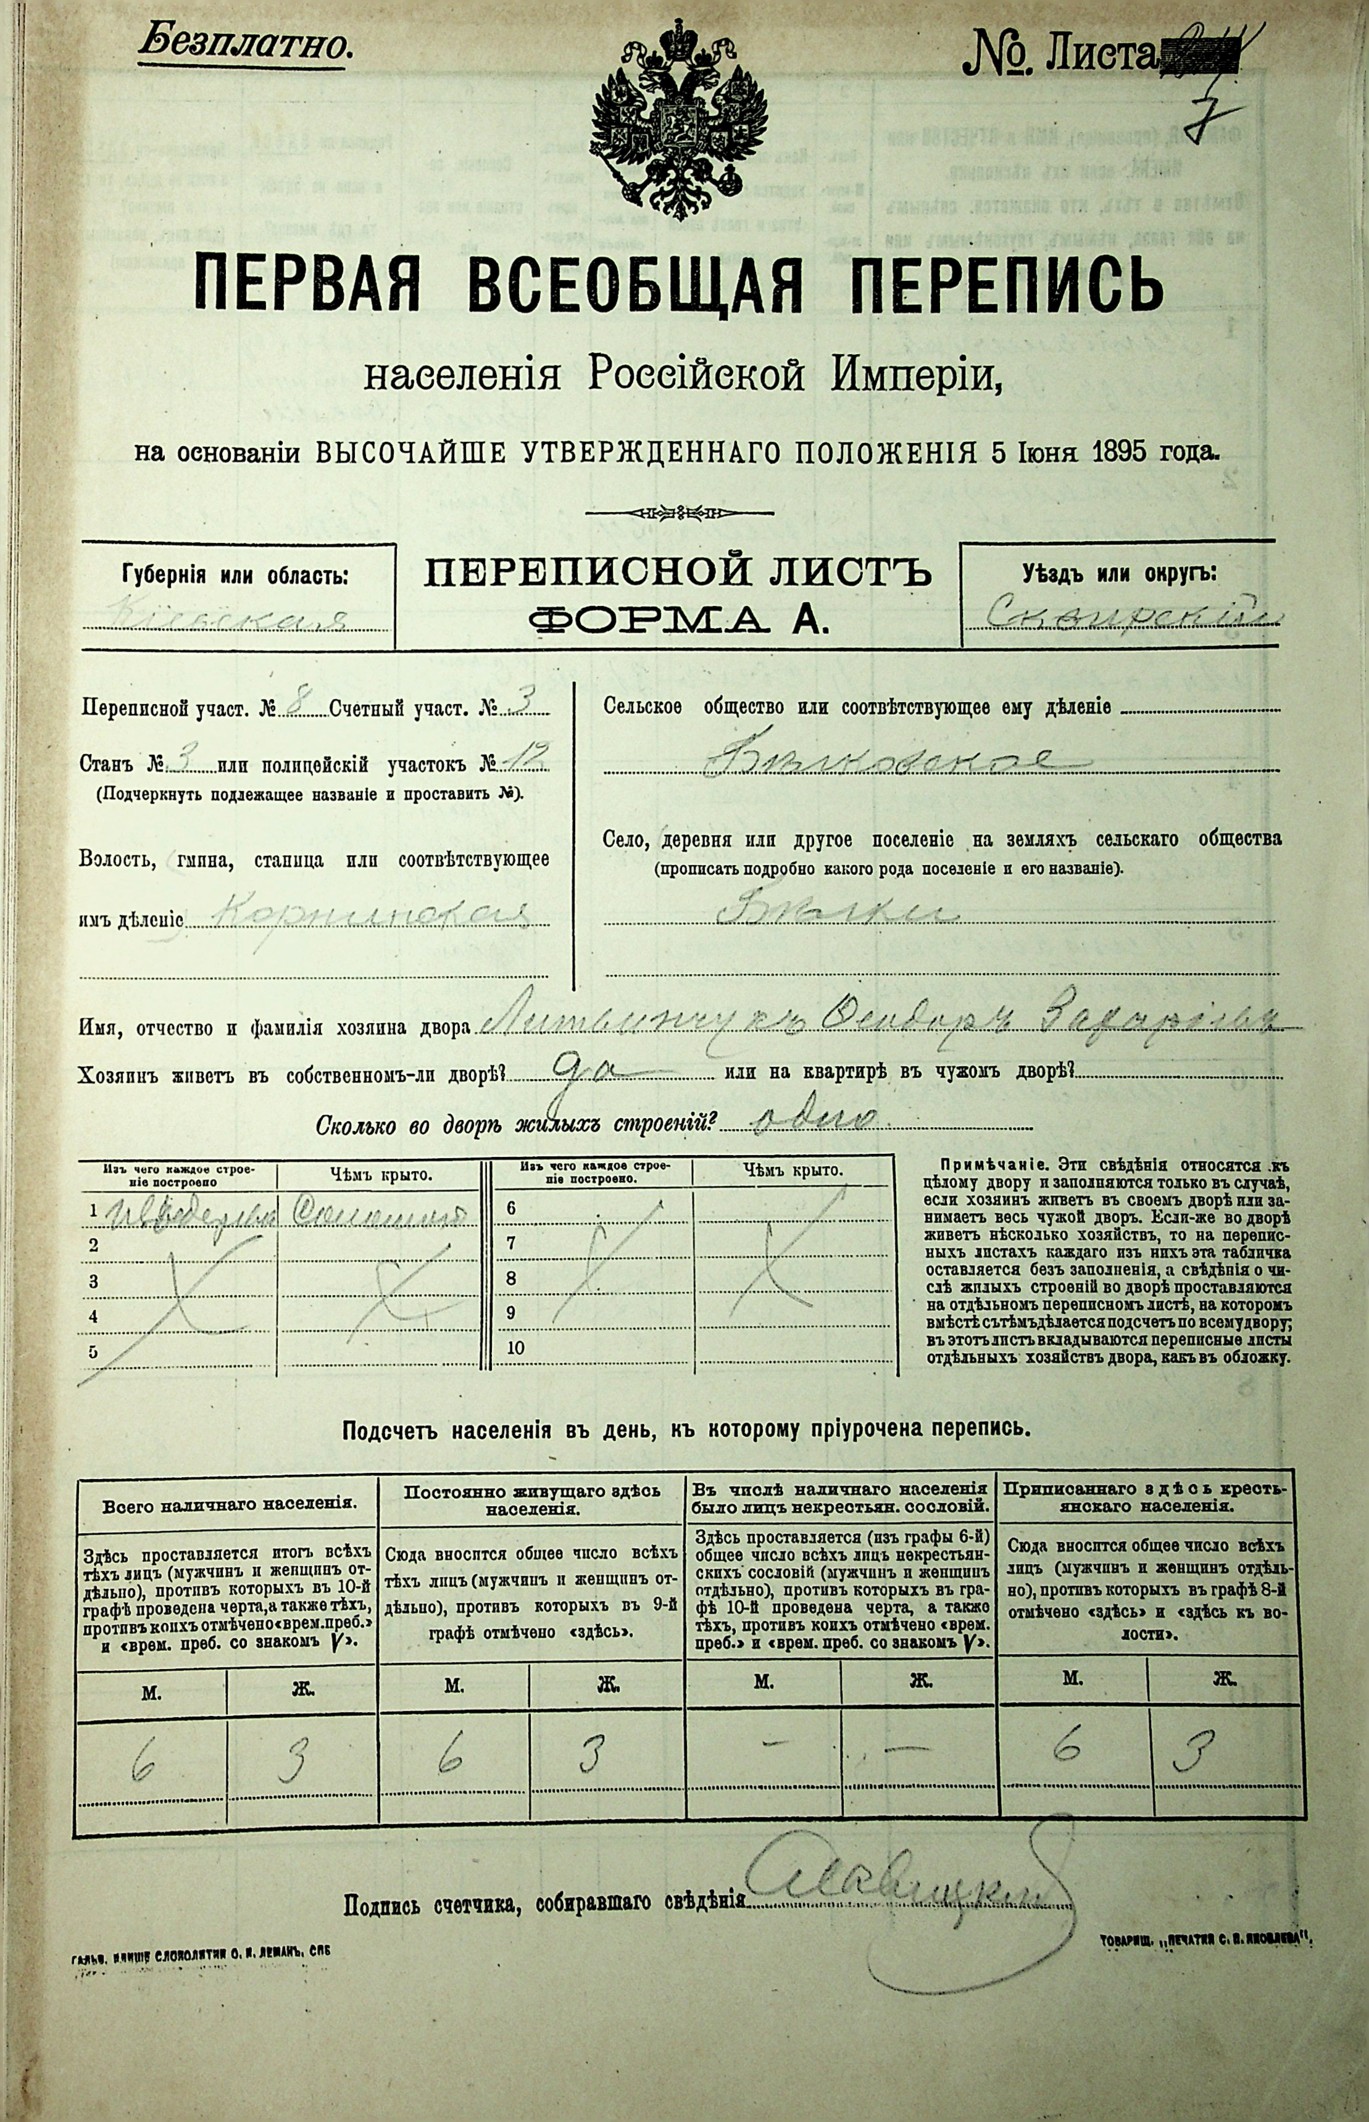 Безплатно.
№ Листа 7
ПЕРВАЯ ВСЕОБЩАЯ ПЕРЕПИСЬ
населенія Россійской Имперіи,
на основаніи ВЫСОЧАЙШЕ УТВЕРЖДЕННАГО ПОЛОЖЕНІЯ 5 Іюня 1895 года.
Губернія или область:
Кіевская
ПЕРЕПИСНОЙ ЛИСТЪ
ФОРМА А.
Уѣздъ или округъ:
Сквирскій
Переписной участ. № 8 Счетный участ. № 3
Станъ № 3 или полицейскій участокъ № 12
(Подчеркнуть подлежащее названіе и проставить №).
Волость, гмина, станица или соотвѣтствующее
имъ дѣленіе Корнинская
Сельское общество или соотвѣтствующее ему дѣленіе
Бѣлковское
Село, деревня или другое поселеніе на земляхъ сельскаго общества
(прописать подробно какого рода поселеніе и его названіе).
Бѣлки
Имя, отчество и фамилія хозяина двора Литвинчукъ Ѳеодоръ Захаріевъ
Хозяинъ живетъ въ собственномъ-ли дворѣ? да или на квартирѣ въ чужомъ дворѣ?
Сколько во дворѣ жилыхъ строеній? одно
Изъ чего каждое строе-
ніе построено
Чѣмъ крыто.
Изъ чего каждое строе-
ніе построено.
Чѣмъ крыто.
1 Соломой
2
3
4
5
6
7
8
9
10
Примѣчаніе. Эти свѣдѣнія относятся къ
цѣлому двору и заполняются только въ случаѣ,
если хозяинъ живетъ въ своемъ дворѣ или за-
нимаетъ весь чужой дворъ. Если-же во дворѣ
живетъ нѣсколько хозяйствъ, то на перепис-
ныхъ листахъ каждаго изъ нихъ эта табличка
оставляется безъ заполненія, а свѣдѣнія о чи-
слѣ жилыхъ строеній во дворѣ проставляются
на отдѣльномъ переписномъ листѣ, на которомъ
вмѣстѣ съ тѣмъ дѣлается подсчетъ по всему двору;
въ этотъ листъ вкладываются переписные листы
отдѣльныхъ хозяйствъ двора, какъ въ обложку.
Подсчетъ населенія въ день, къ которому пріурочена перепись.
Всего наличнаго населенія.
Здѣсь проставляется итогъ всѣхъ
тѣхъ лицъ (мужчинъ и женщинъ от-
дѣльно), противъ которыхъ въ 10-й
графѣ проведена черта, а также тѣхъ,
противъ коихъ отмѣчено «врем. преб.»
и «врем. преб. со знакомъ V».
М. Ж.
6 3
Постоянно живущаго здѣсь
населенія.
Сюда вносится общее число всѣхъ
тѣхъ лицъ (мужчинъ и женщинъ от-
дѣльно), противъ которыхъ въ 9-й
графѣ отмѣчено «здѣсь».
М. Ж.
6 3
Въ числѣ наличнаго населенія
было лицъ некрестьян. сословій.
Здѣсь проставляется (изъ графы 6-й)
общее число всѣхъ лицъ некрестьян-
скихъ сословій (мужчинъ и женщинъ
отдѣльно), противъ которыхъ въ гра-
фѣ 10-й проведена черта, а также
тѣхъ, противъ коихъ отмѣчено «врем.
преб.» и «врем. преб. со знакомъ V».
М. Ж.
- -
Приписаннаго здѣсь кресть-
янскаго населенія.
Сюда вносится общее число всѣхъ
лицъ (мужчинъ и женщинъ отдѣль-
но), противъ которыхъ въ графѣ 8-й
отмѣчено «здѣсь» и «здѣсь въ во-
лости».
М. Ж.
6 3
Подпись счетчика, собиравшаго свѣдѣнія
ГАЛЬВ. КЛИШЕ СЛОВОЛИТНИ О. И. ЛЕМАНЪ, СПБ
ТОВАРИЩ. „ПЕЧАТНЯ С. П. ЯКОВЛЕВА".